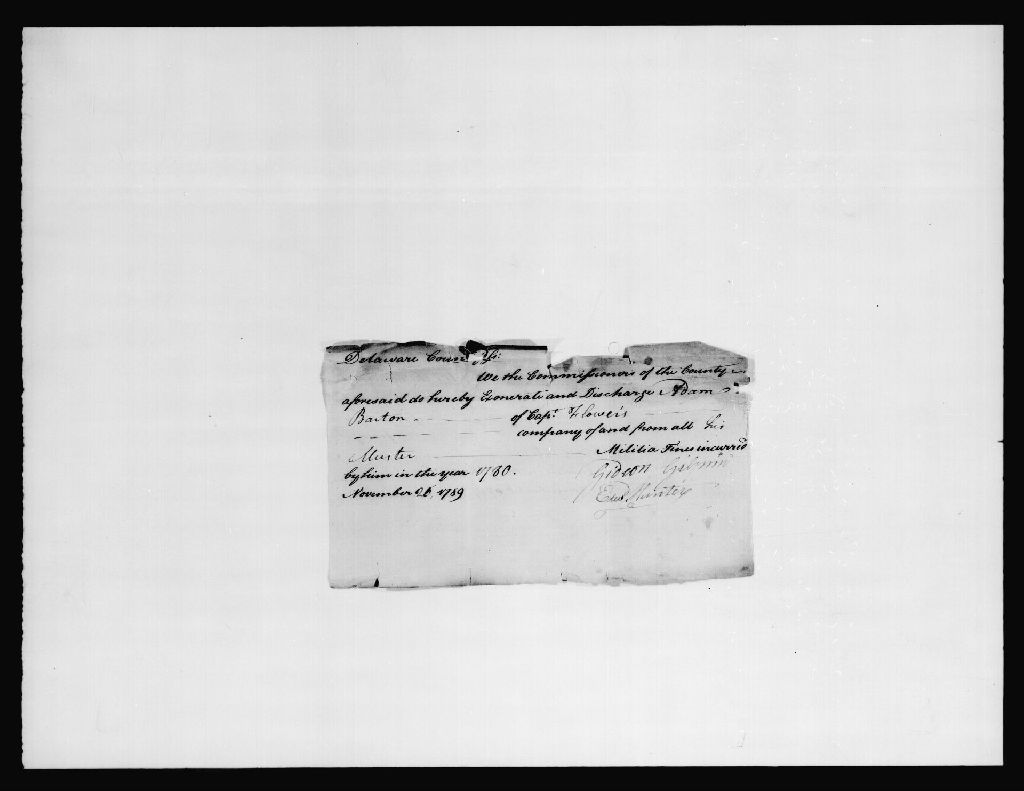 Delaware County Ss:
We the Commissioners of the County
aforesaid do hereby Exonerate and Discharge Adam
Barton of Capt. Flowers
company of and from all his
Muster Militia Fines incurred
by him in the year 1780.
November 26, 1789
Gideon Gilpin
Edwd. Hunter